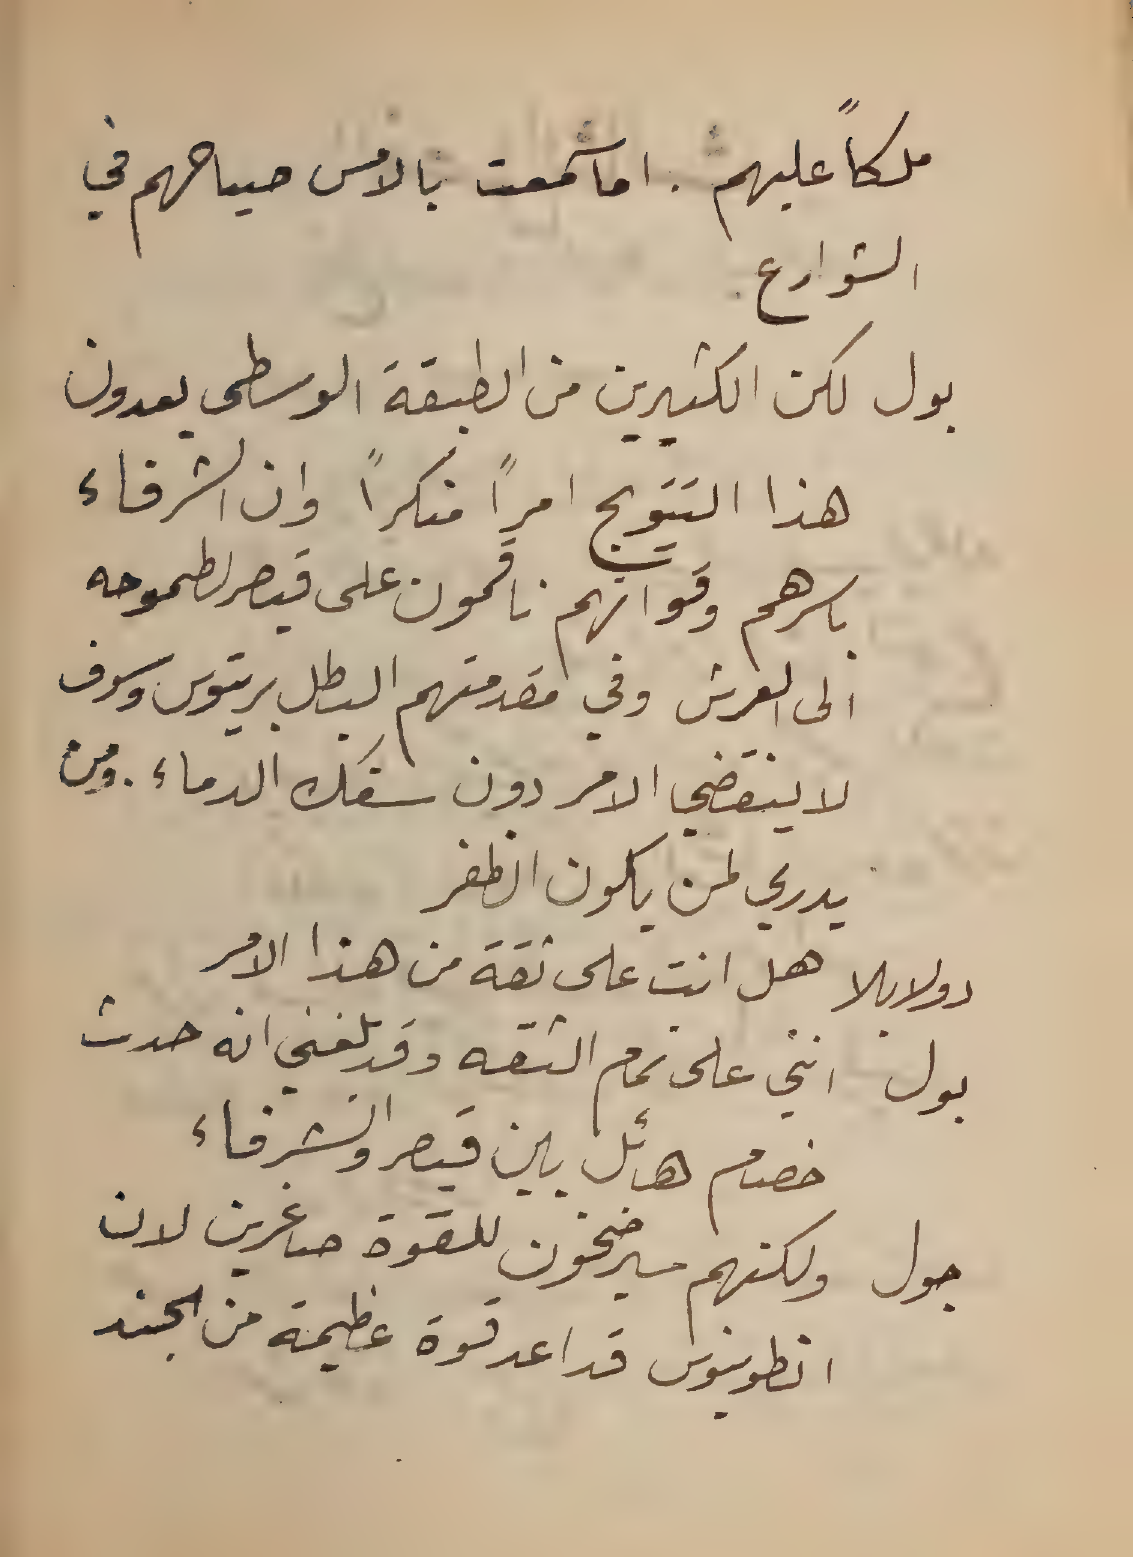 ملكاً عليهم . اما سمعت بالامس صياحهم في
الشوارع .
بول لكن الكثيرين من الطبقة الوسطى يعدون
هذا التتويج امراً منكراً وان الشرفاء
باسرهم وقواتهم ناقمون على قيصر لطموحه
الى العرش وفي مقدمتهم البطل بريتوس وسوف
لا ينقضي الامر دون سفك الدماء . ومن
يدري لمن يكون الظفر
دولابلا هل انت على ثقة من هذا الامر
بول انني على تمام الثقه وقد بلغني انه حدث
خصام هائل بين قيصر والشرفاء
جول ولكنهم سيرضخون للقوة صاغرين لان
انطونيوس قد اعد قوة عظيمة من الجند